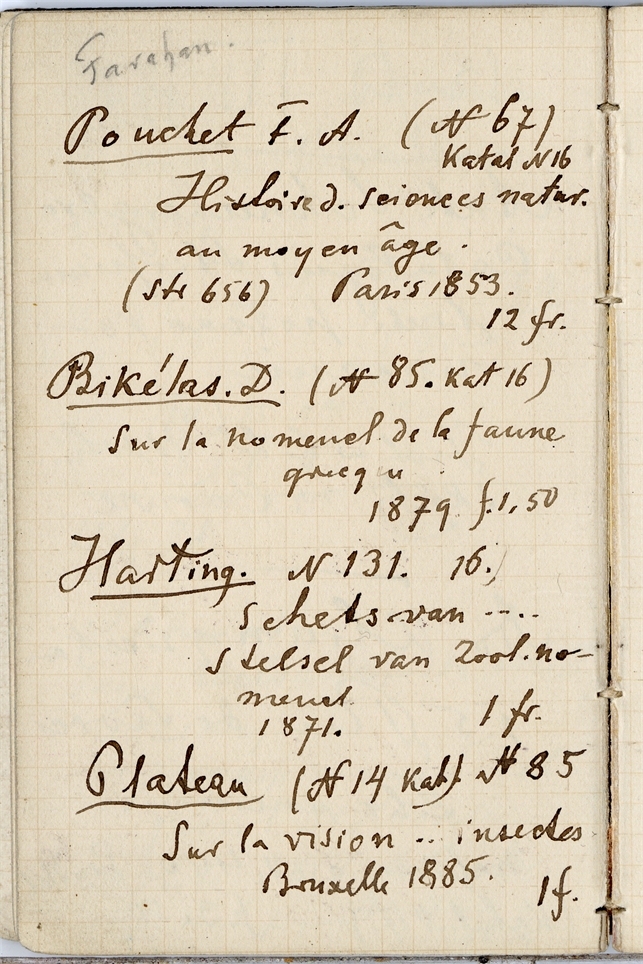 Farahan.
Pouchet F. A. (N 67)
Katal N16
Histoire d. sciences natur.
au moyen âge.
(Str 656) Paris 1853.
12 fr.
Bikélas. D. (N 85. Kat 16)
Sur la nomencl de la faune
grecqu
1879 f. 1,50
Harting. N 131. 16.)
Schets van ....
stelsel van Zool. no-
mencl.
1871. 1 fr.
Plateau (N 14 Kat). N 85
Sur la vision .. insectes
Bruxelle 1885.
1 f.